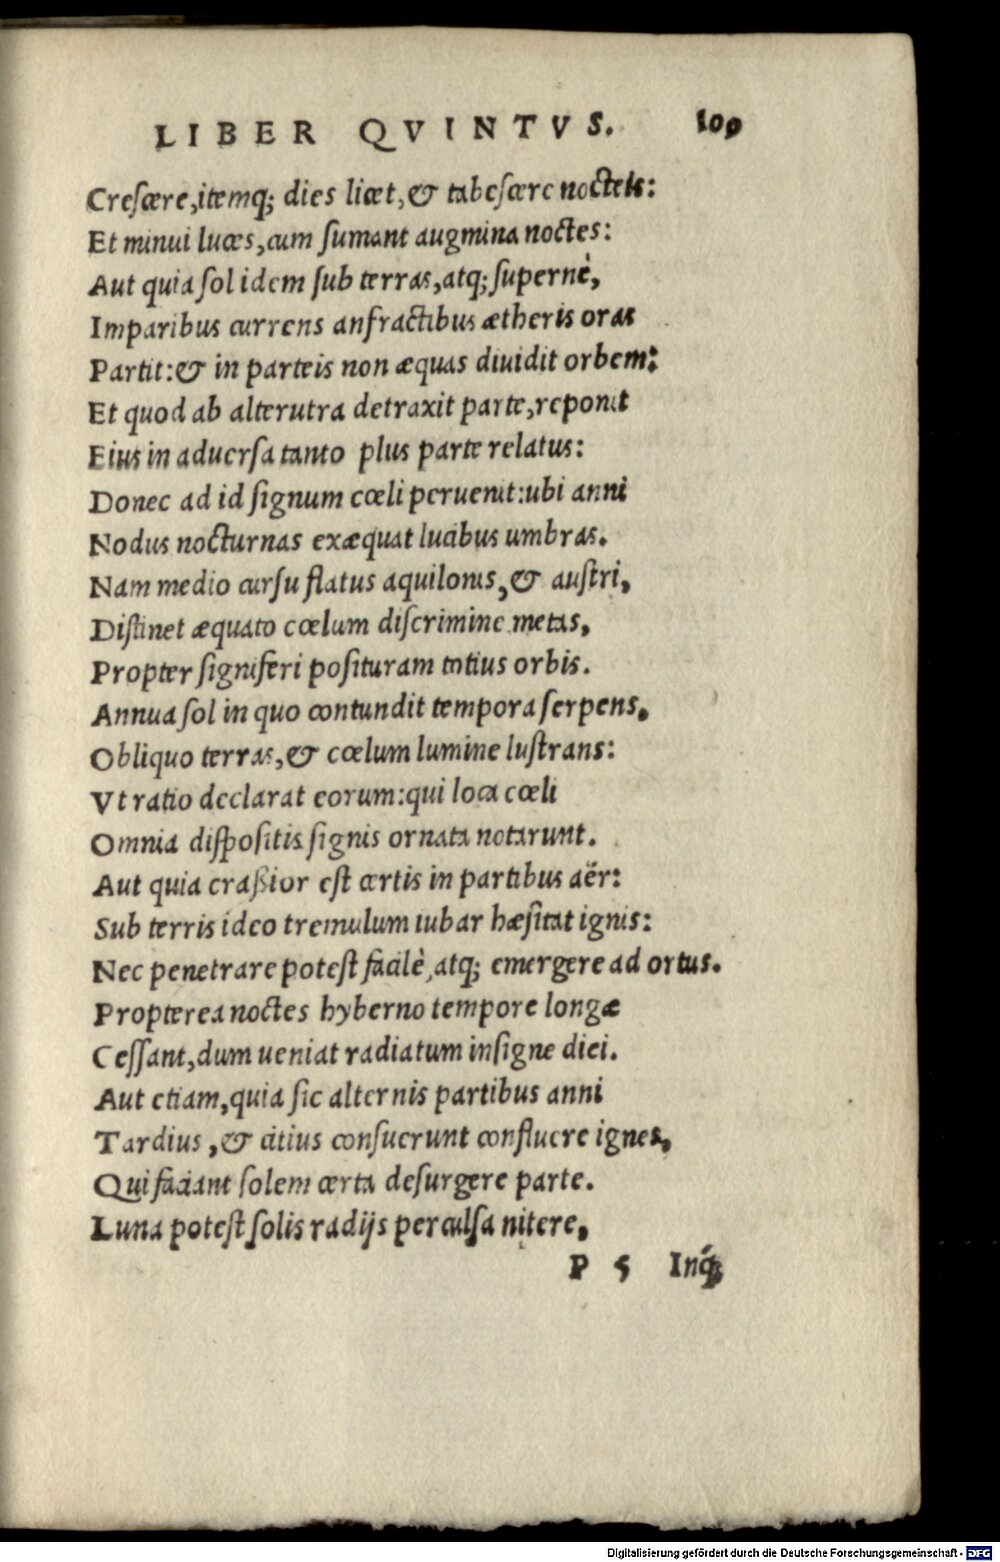 LIBER QVINTVS. 109
Creſcere, itemq; dies licet, & tabeſcere nocteis:
Et minui luces, cum ſumant augmina noctes:
Aut quia ſol idem ſub terras, atq; ſupernè,
Imparibus currens anfractibus ætheris oras
Partit: & in parteis non æquas diuidit orbem:
Et quod ab alterutra detraxit parte, reponit
Eius in aduerſa tanto plus parte relatus:
Donec ad id ſignum cœli peruenit: ubi anni
Nodus nocturnas exæquat lucibus umbras.
Nam medio curſu flatus aquilonis, & auſtri,
Diſtinet æquato cœlum diſcrimine metas,
Propter ſigniferi poſituram totius orbis.
Annua ſol in quo contundit tempora ſerpens,
Obliquo terras, & cœlum lumine luſtrans:
Vt ratio declarat eorum: qui loca cœli
Omnia diſpoſitis ſignis ornata notarunt.
Aut quia craßior eſt certis in partibus aër:
Sub terris ideo tremulum iubar hæſitat ignis:
Nec penetrare poteſt facilè, atq; emergere ad ortus.
Propterea noctes hyberno tempore longæ
Ceſſant, dum ueniat radiatum inſigne diei.
Aut etiam, quia ſic alternis partibus anni
Tardius, & citius conſuerunt confluere ignes,
Qui faciant ſolem certa deſurgere parte.
Luna poteſt ſolis radijs perculſa nitere,
P 5 Inq́;
Digitalisierung gefördert durch die Deutsche Forschungsgemeinschaft - DFG